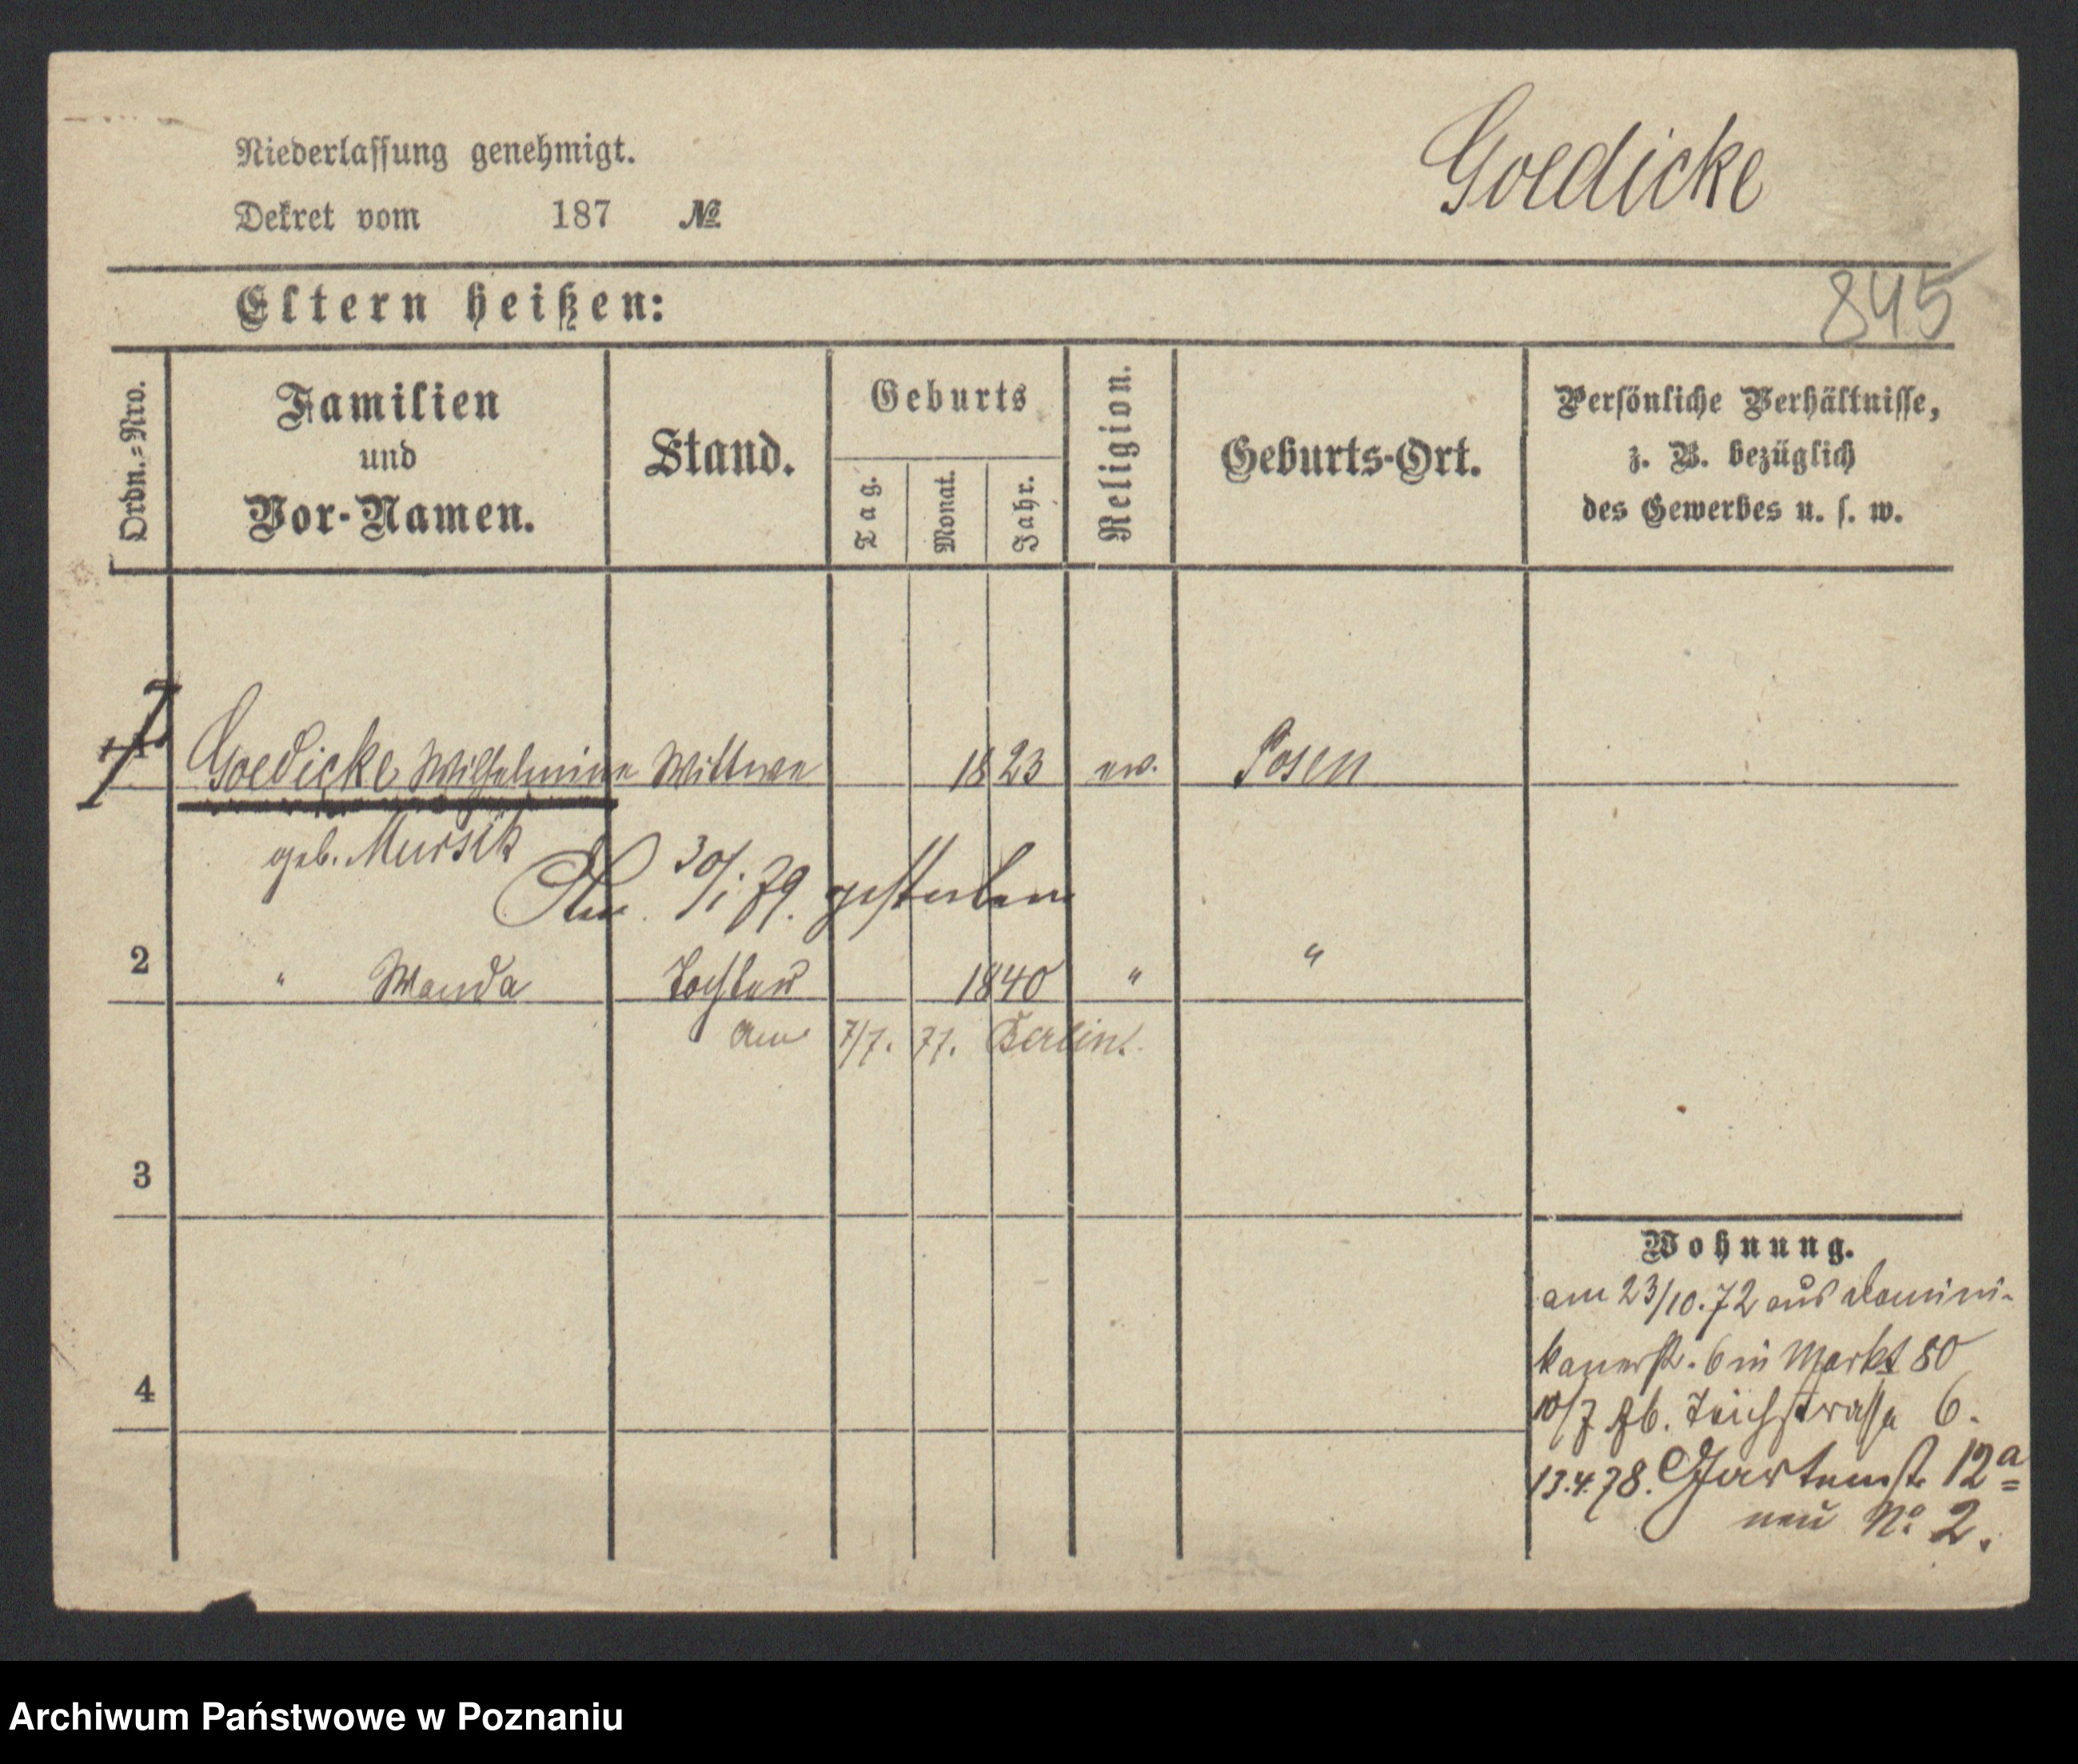 Niederlassung genehmigt.
Goedicke
Dekret vom 187 №
Eltern heißen:
845
Ordn.=Nro.
Familien
und
Vor-Namen.
Stand.
Geburts
Tag.
Monat.
Jahr.
Religion.
Geburts-Ort.
Persönliche Verhältnisse,
z. B. bezüglich
des Gewerbes u. s. w.
Goedicke Wilhelmine Wittwe 1823 ev. Posen
geb. Mursik
Am 30/1. 79. gestorben
2 " Wanda Tochter 1840 " "
Am 7/7. 77. Berlin.
3
Wohnung.
am 23/10.72 aus Domini-
kanerstr. 6 in Markt 80
10/7 76. Teichstrasse 6.
4
13.4.78. Gartenstr 12a
neu No 2.